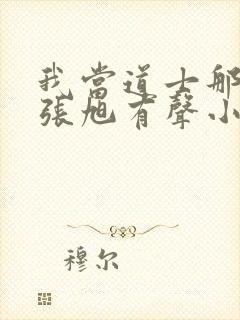 我當道士那
張旭有聲小
穆尔